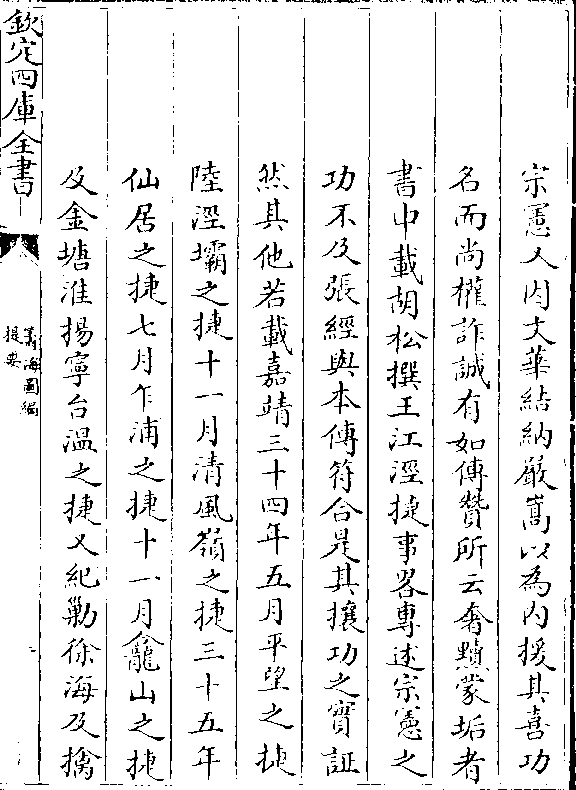 宗憲又因文華結納嚴嵩以為内援其喜功
名而尚權詐誠有如傳贊所云奢黷蒙垢者
書中載胡松撰王江涇捷事畧專述宗憲之
功不及張經與本傳符合是其攘功之實証
然其他若載嘉靖三十四年五月平望之捷
陸涇壩之捷十一月清風嶺之捷三十五年
仙居之捷七月乍浦之捷十一月龕山之捷
及金塘淮揚寧台溫之捷又紀勦徐海及擒
欽定四庫全書
籌海圖編
提要